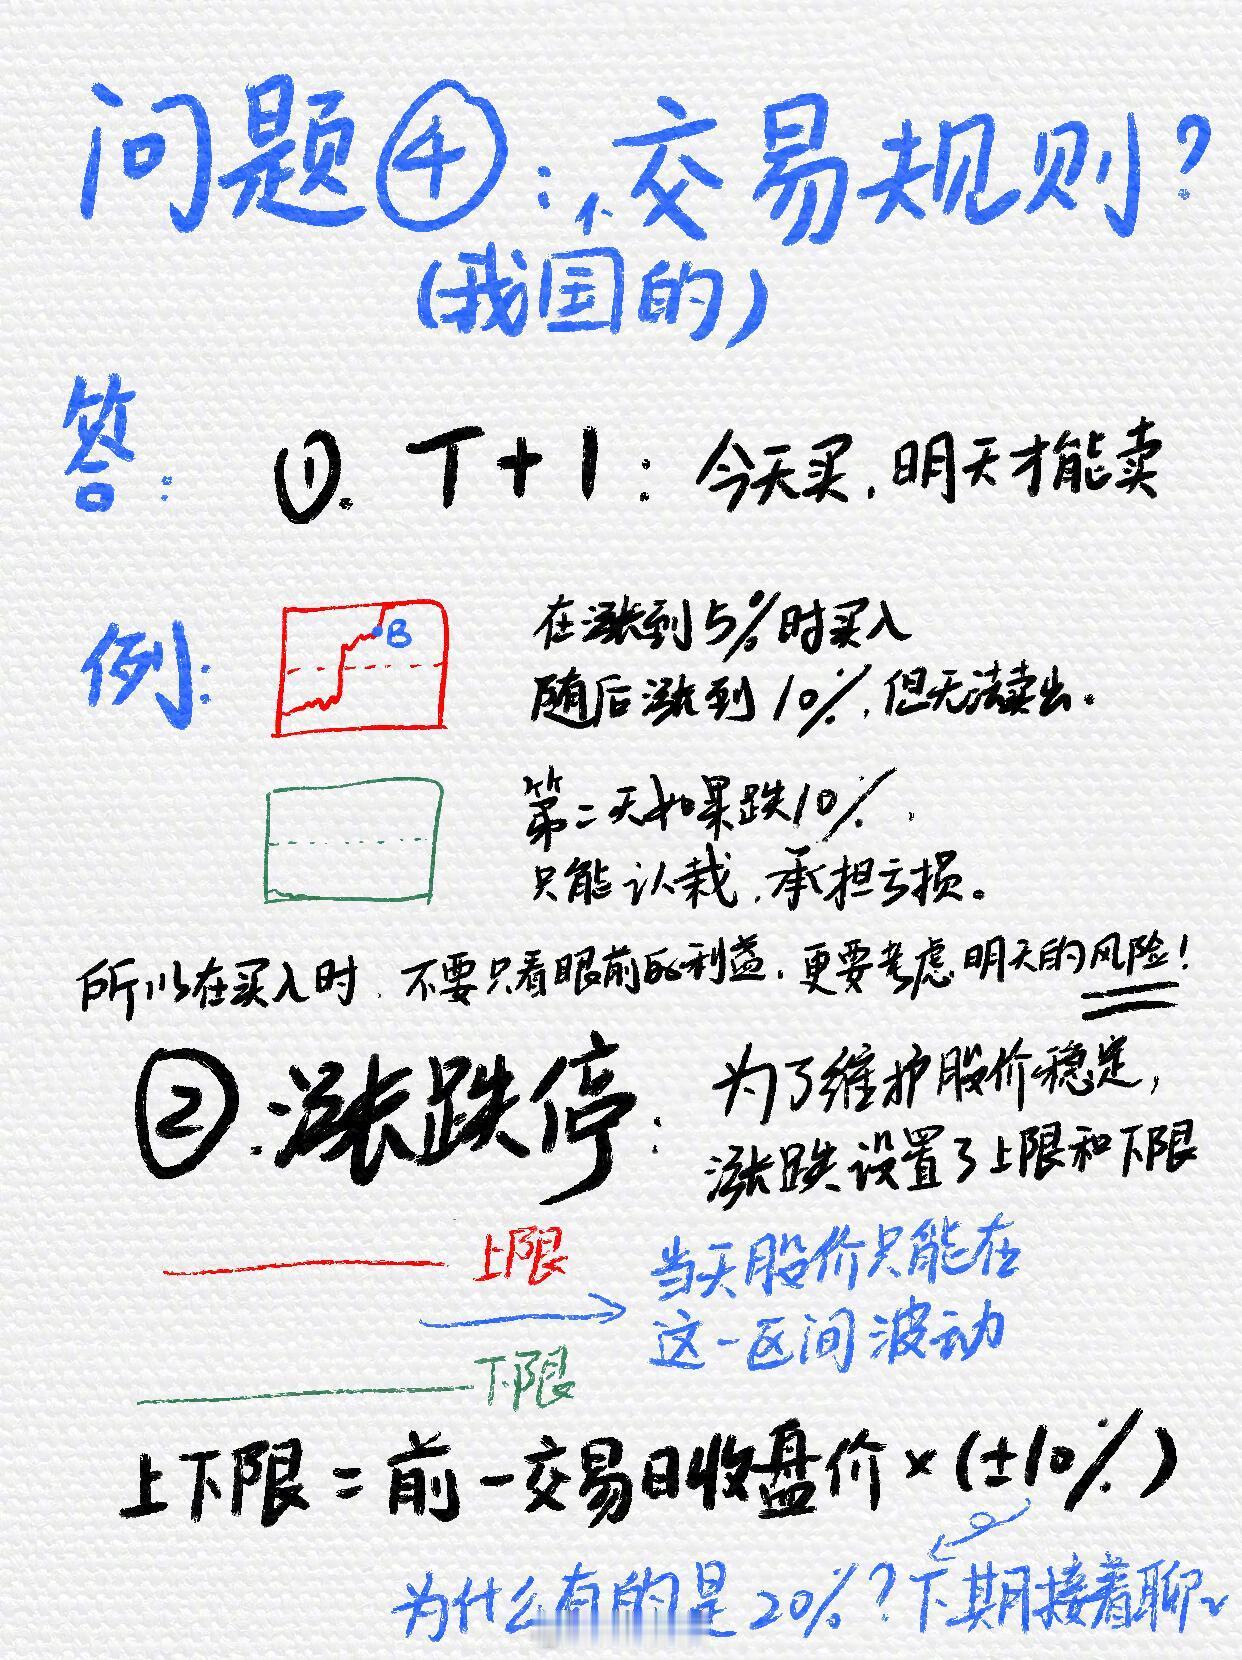 问题④：交易规则？
(我国的)
答：①. T+1：今天买，明天才能卖
例：
B
在涨到5%时买入
随后涨到10%，但无法卖出。
第二天如果跌10%，
只能认栽，承担亏损。
所以在买入时，不要只看眼前的利益，更要考虑明天的风险！
②.涨跌停：为了维护股价稳定，
涨跌设置了上限和下限
上限
当天股价只能在
这一区间波动
下限
上下限=前一交易日收盘价×(±10%)
为什么有的是20%？下期接着聊~